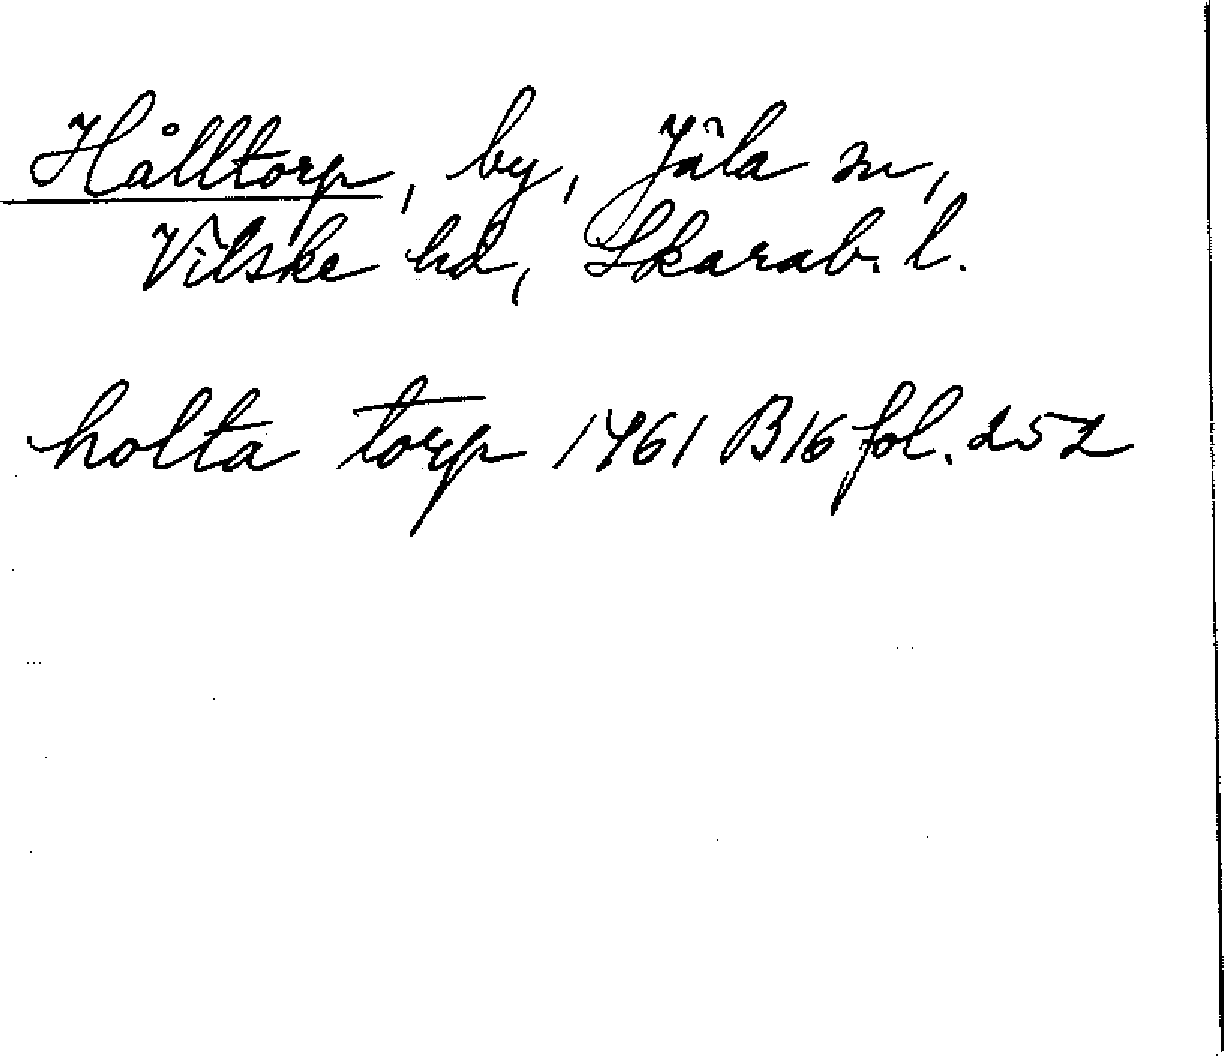 Hålltorp, by, Jäla sn,
Vilske hd, Skarab. l.
holta torp 1461 B16 fol. 252